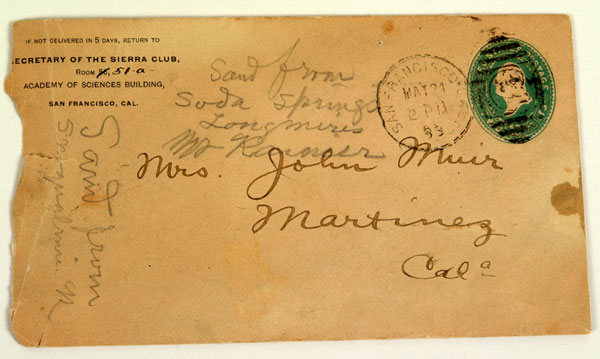 IF NOT DELIVERED IN 5 DAYS, RETURN TO
SECRETARY OF THE SIERRA CLUB,
ROOM 51-a
ACADEMY OF SCIENCES BUILDING,
SAN FRANCISCO, CAL.
Sand from
Soda Springs
Longmires
Mt Rainier
SAN FRANCISCO
2 PM
93
Mrs. John Muir
Martinez
Cala
Sand from